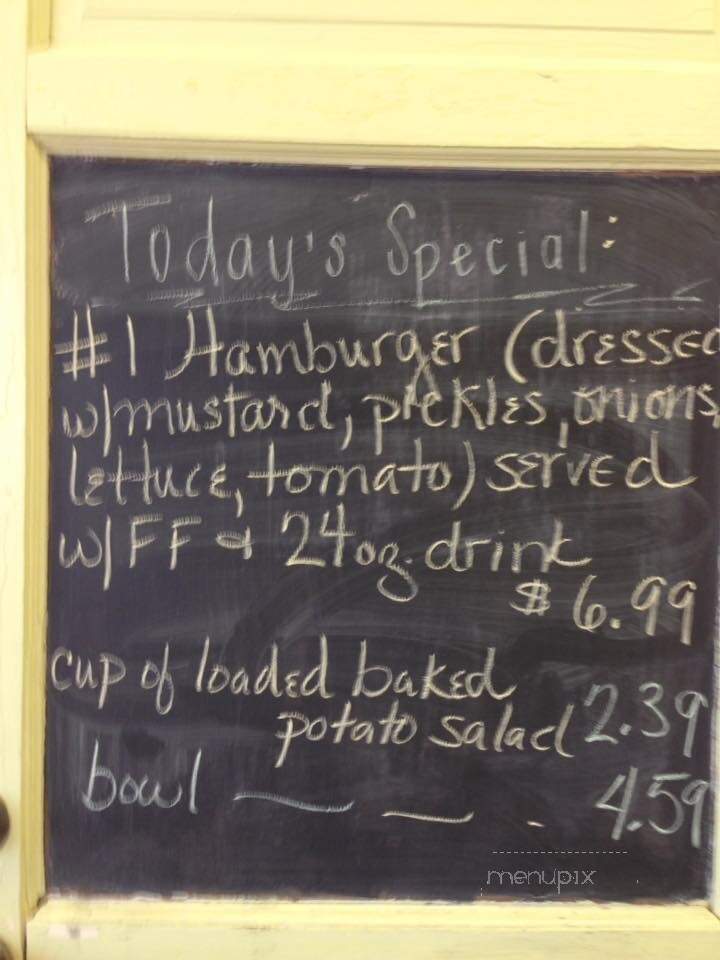 Today's Special:
#1 Hamburger (dressed
w/mustard, pickles, onions,
lettuce, tomato) served
w/ FF & 24oz. drink
$6.99
cup of loaded baked
potato salad 2.39
bowl — — - 4.59
menupix